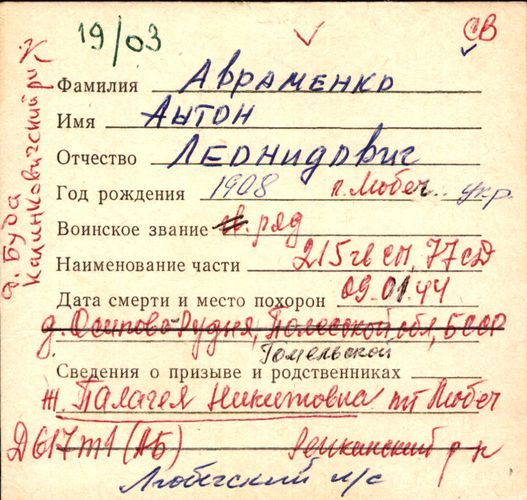 19/03
СВ
д. Буда
Калинковичский р-н
Фамилия АВРАМЕНКО
Имя АНТОН
Отчество ЛЕОНИДОВИЧ
Год рождения 1908 п. Любеч укр.
Воинское звание гв. ряд
Наименование части 215 гв сп, 77 сД
Дата смерти и место похорон 09.01.44
д. Осипова-Рудня, Полесской обл, БССР
Гомельской
Сведения о призыве и родственниках
ж Палагея Никитовна пгт Любеч
Д617т1 (АБ) р-н
Любечский с/с